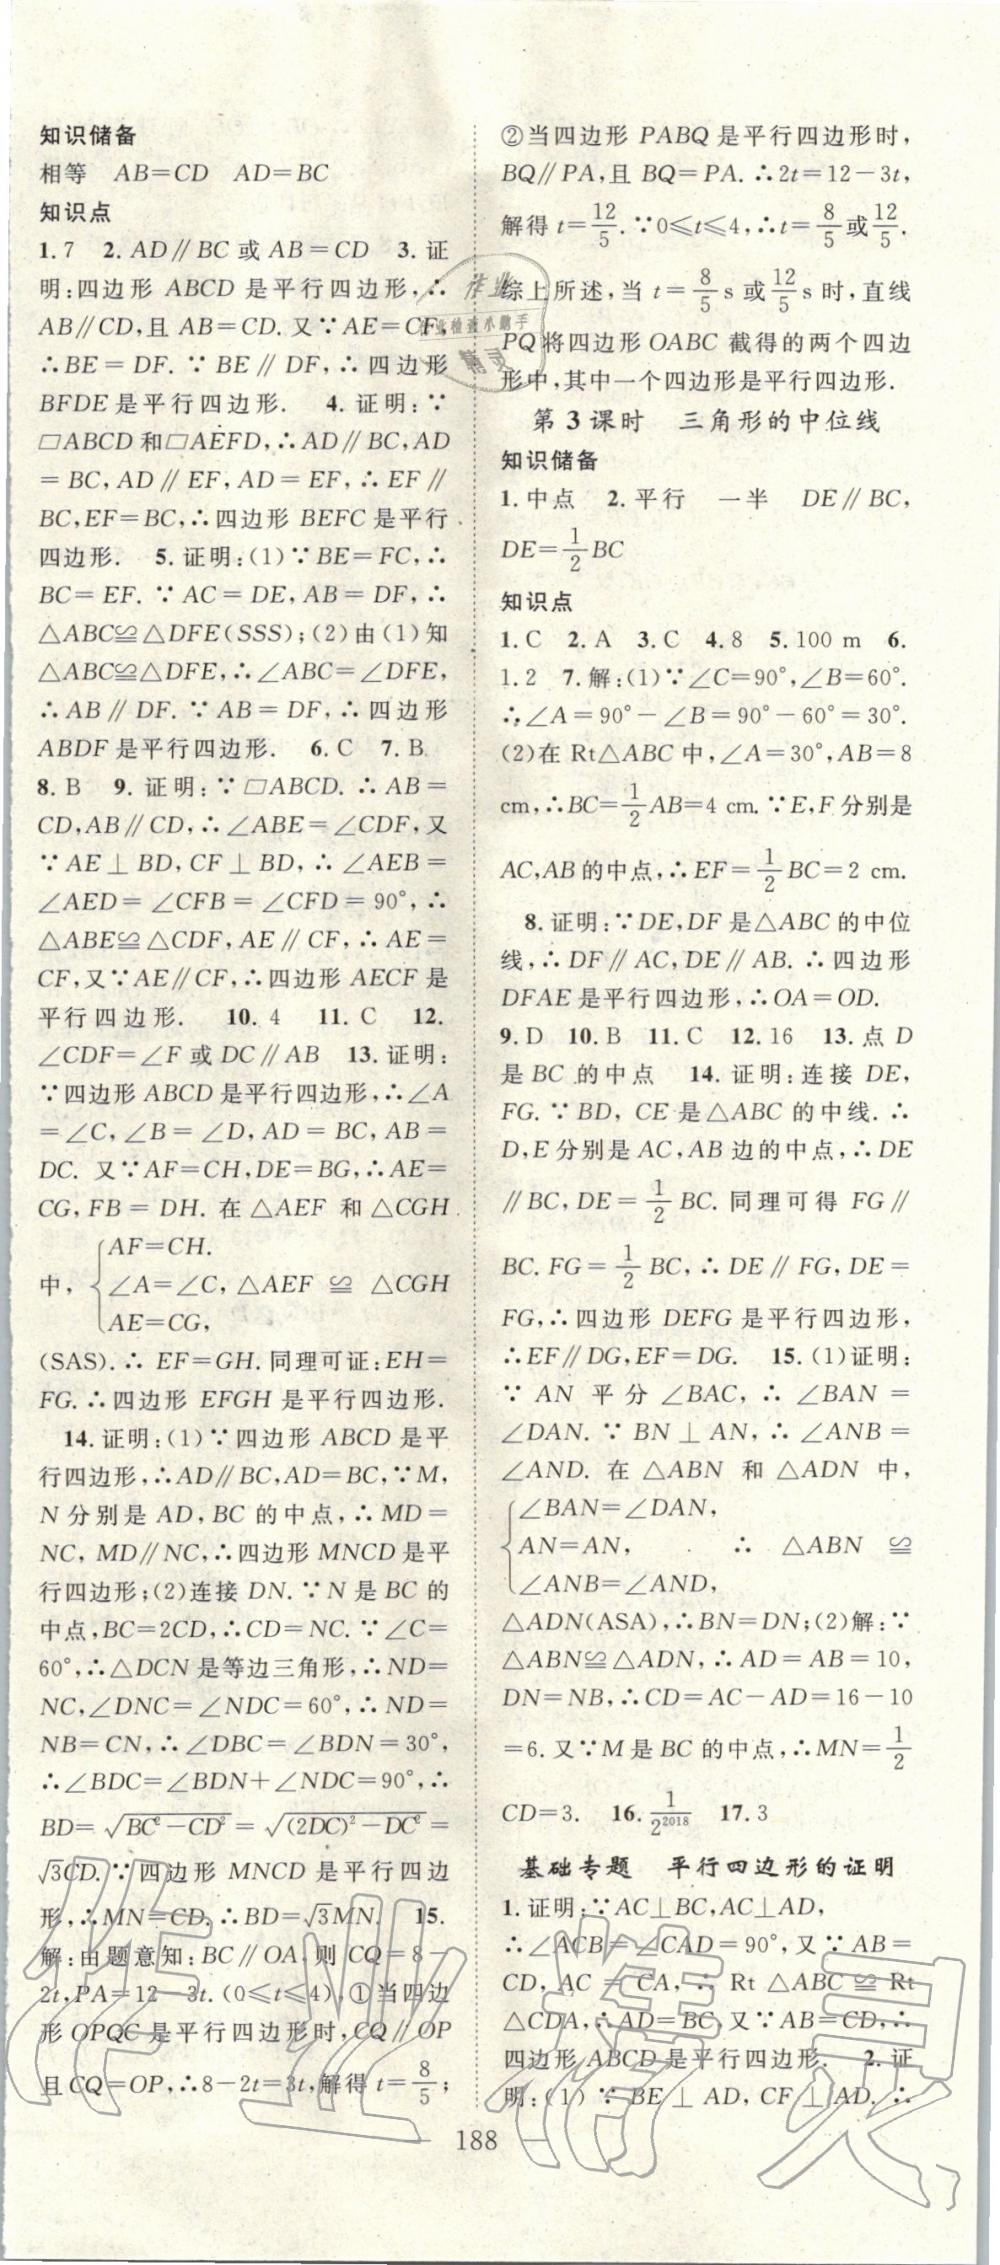 知识储备
相等　AB=CD　AD=BC
知识点
1.7　2. AD∥BC 或 AB=CD　3. 证
明:四边形 ABCD 是平行四边形,∴
AB∥CD,且 AB=CD. 又∵AE=CF,
∴BE=DF. ∵BE∥DF,∴四边形
BFDE 是平行四边形.　4. 证明:∵
▱ABCD 和▱AEFD,∴AD∥BC,AD
=BC,AD∥EF,AD=EF,∴EF∥
BC,EF=BC,∴四边形 BEFC 是平行
四边形.　5. 证明:(1)∵BE=FC,∴
BC=EF. ∵AC=DE,AB=DF,∴
△ABC≌△DFE(SSS);(2)由(1)知
△ABC≌△DFE,∴∠ABC=∠DFE,
∴AB∥DF. ∵AB=DF,∴四边形
ABDF 是平行四边形.　6. C　7. B
8. B　9. 证明:∵▱ABCD. ∴AB=
CD,AB∥CD,∴∠ABE=∠CDF,又
∵AE⊥BD,CF⊥BD,∴∠AEB=
∠AED=∠CFB=∠CFD=90°,∴
△ABE≌△CDF,AE∥CF,∴AE=
CF,又∵AE∥CF,∴四边形 AECF 是
平行四边形.　10. 4　11. C　12.
∠CDF=∠F 或 DC∥AB　13. 证明:
∵四边形 ABCD 是平行四边形,∴∠A
=∠C,∠B=∠D,AD=BC,AB=
DC. 又∵AF=CH,DE=BG,∴AE=
CG,FB=DH. 在△AEF 和△CGH
AF=CH.
中, ∠A=∠C, △AEF ≌ △CGH
AE=CG,
(SAS). ∴EF=GH. 同理可证:EH=
FG. ∴四边形 EFGH 是平行四边形.
14. 证明:(1)∵四边形 ABCD 是平
行四边形,∴AD∥BC,AD=BC,∵M,
N 分别是 AD,BC 的中点,∴MD=
NC,MD∥NC,∴四边形 MNCD 是平
行四边形;(2)连接 DN. ∵N 是 BC 的
中点,BC=2CD,∴CD=NC. ∵∠C=
60°,∴△DCN 是等边三角形,∴ND=
NC,∠DNC=∠NDC=60°,∴ND=
NB=CN,∴∠DBC=∠BDN=30°,
∴∠BDC=∠BDN+∠NDC=90°,∴
BD=√(BC²-CD²)=√((2DC)²-DC²)=
√3CD. ∵四边形 MNCD 是平行四边
形,∴MN=CD. ∴BD=√3MN.　15.
解:由题意知:BC∥OA,则 CQ=8-
2t,PA=12-3t. (0≤t≤4),①当四边
形 OPQC 是平行四边形时,CQ∥OP
且 CQ=OP,∴8-2t=3t,解得 t=8/5;
②当四边形 PABQ 是平行四边形时,
BQ∥PA,且 BQ=PA. ∴2t=12-3t,
解得 t=12/5. ∵0≤t≤4,∴t=8/5或12/5.
综上所述,当 t=8/5 s 或12/5 s 时,直线
PQ 将四边形 OABC 截得的两个四边
形中,其中一个四边形是平行四边形.
第 3 课时　三角形的中位线
知识储备
1. 中点　2. 平行　一半　DE∥BC,
DE=1/2BC
知识点
1. C　2. A　3. C　4. 8　5. 100 m　6.
1.2　7. 解:(1)∵∠C=90°,∠B=60°.
∴∠A=90°-∠B=90°-60°=30°.
(2)在 Rt△ABC 中,∠A=30°,AB=8
cm,∴BC=1/2AB=4 cm. ∵E,F 分别是
AC,AB 的中点,∴EF=1/2BC=2 cm.
8. 证明:∵DE,DF 是△ABC 的中位
线,∴DF∥AC,DE∥AB. ∴四边形
DFAE 是平行四边形,∴OA=OD.
9. D　10. B　11. C　12. 16　13. 点 D
是 BC 的中点　14. 证明:连接 DE,
FG. ∵BD,CE 是△ABC 的中线. ∴
D,E 分别是 AC,AB 边的中点,∴DE
∥BC,DE=1/2BC. 同理可得 FG∥
BC. FG=1/2BC,∴DE∥FG,DE=
FG,∴四边形 DEFG 是平行四边形,
∴EF∥DG,EF=DG.　15. (1)证明:
∵AN 平分∠BAC,∴∠BAN=
∠DAN. ∵BN⊥AN,∴∠ANB=
∠AND. 在△ABN 和△ADN 中,
∠BAN=∠DAN,
AN=AN,　∴　△ABN　≌
∠ANB=∠AND,
△ADN(ASA),∴BN=DN;(2)解:∵
△ABN≌△ADN,∴AD=AB=10,
DN=NB,∴CD=AC-AD=16-10
=6. 又∵M 是 BC 的中点,∴MN=1/2
CD=3.　16. 1/2²⁰¹⁸　17. 3
基础专题　平行四边形的证明
1. 证明:∵AC⊥BC,AC⊥AD,
∴∠ACB=∠CAD=90°,又∵AB=
CD,AC=CA,∴Rt△ABC≌Rt
△CDA,∴AD=BC,又∵AB=CD,∴
四边形 ABCD 是平行四边形.　2. 证
明:(1)∵BE⊥AD,CF⊥AD. ∴
188
作业
作业检查小助手
精灵
作业精灵